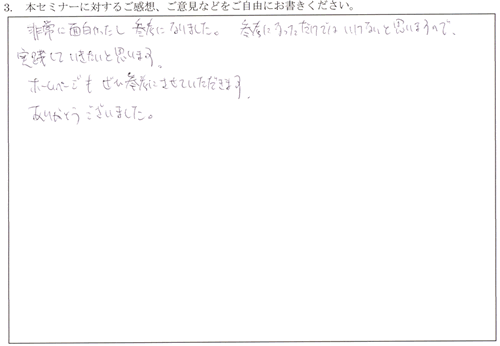 3. 本セミナーに対するご感想、ご意見などをご自由にお書きください。
非常に面白かったし 参考になりました。 参考になっただけではいけないと思いますので、
実践していきたいと思います。
ホームページも ぜひ参考にさせていただきます。
ありがとうございました。